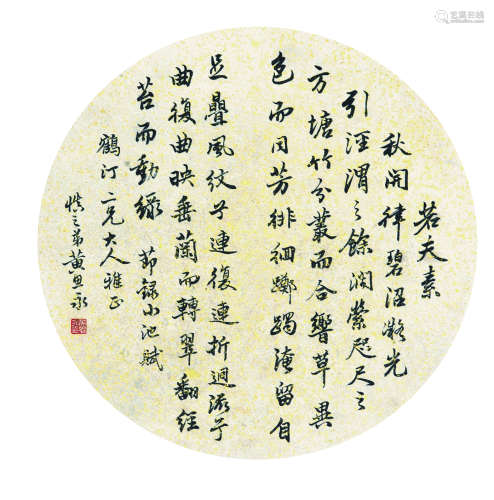 若夫素
秋開律碧沼凝光
引涇渭之餘潤縈咫尺之
方塘竹分叢而合響草異
色而同芳徘徊躑躅淹留自
足疊風紋兮連復連折迴流兮
曲復曲映垂蘭而轉翠翻輕
苔而動綠 節錄小池賦
鶴汀二兄大人雅正
慎之弟黃思永